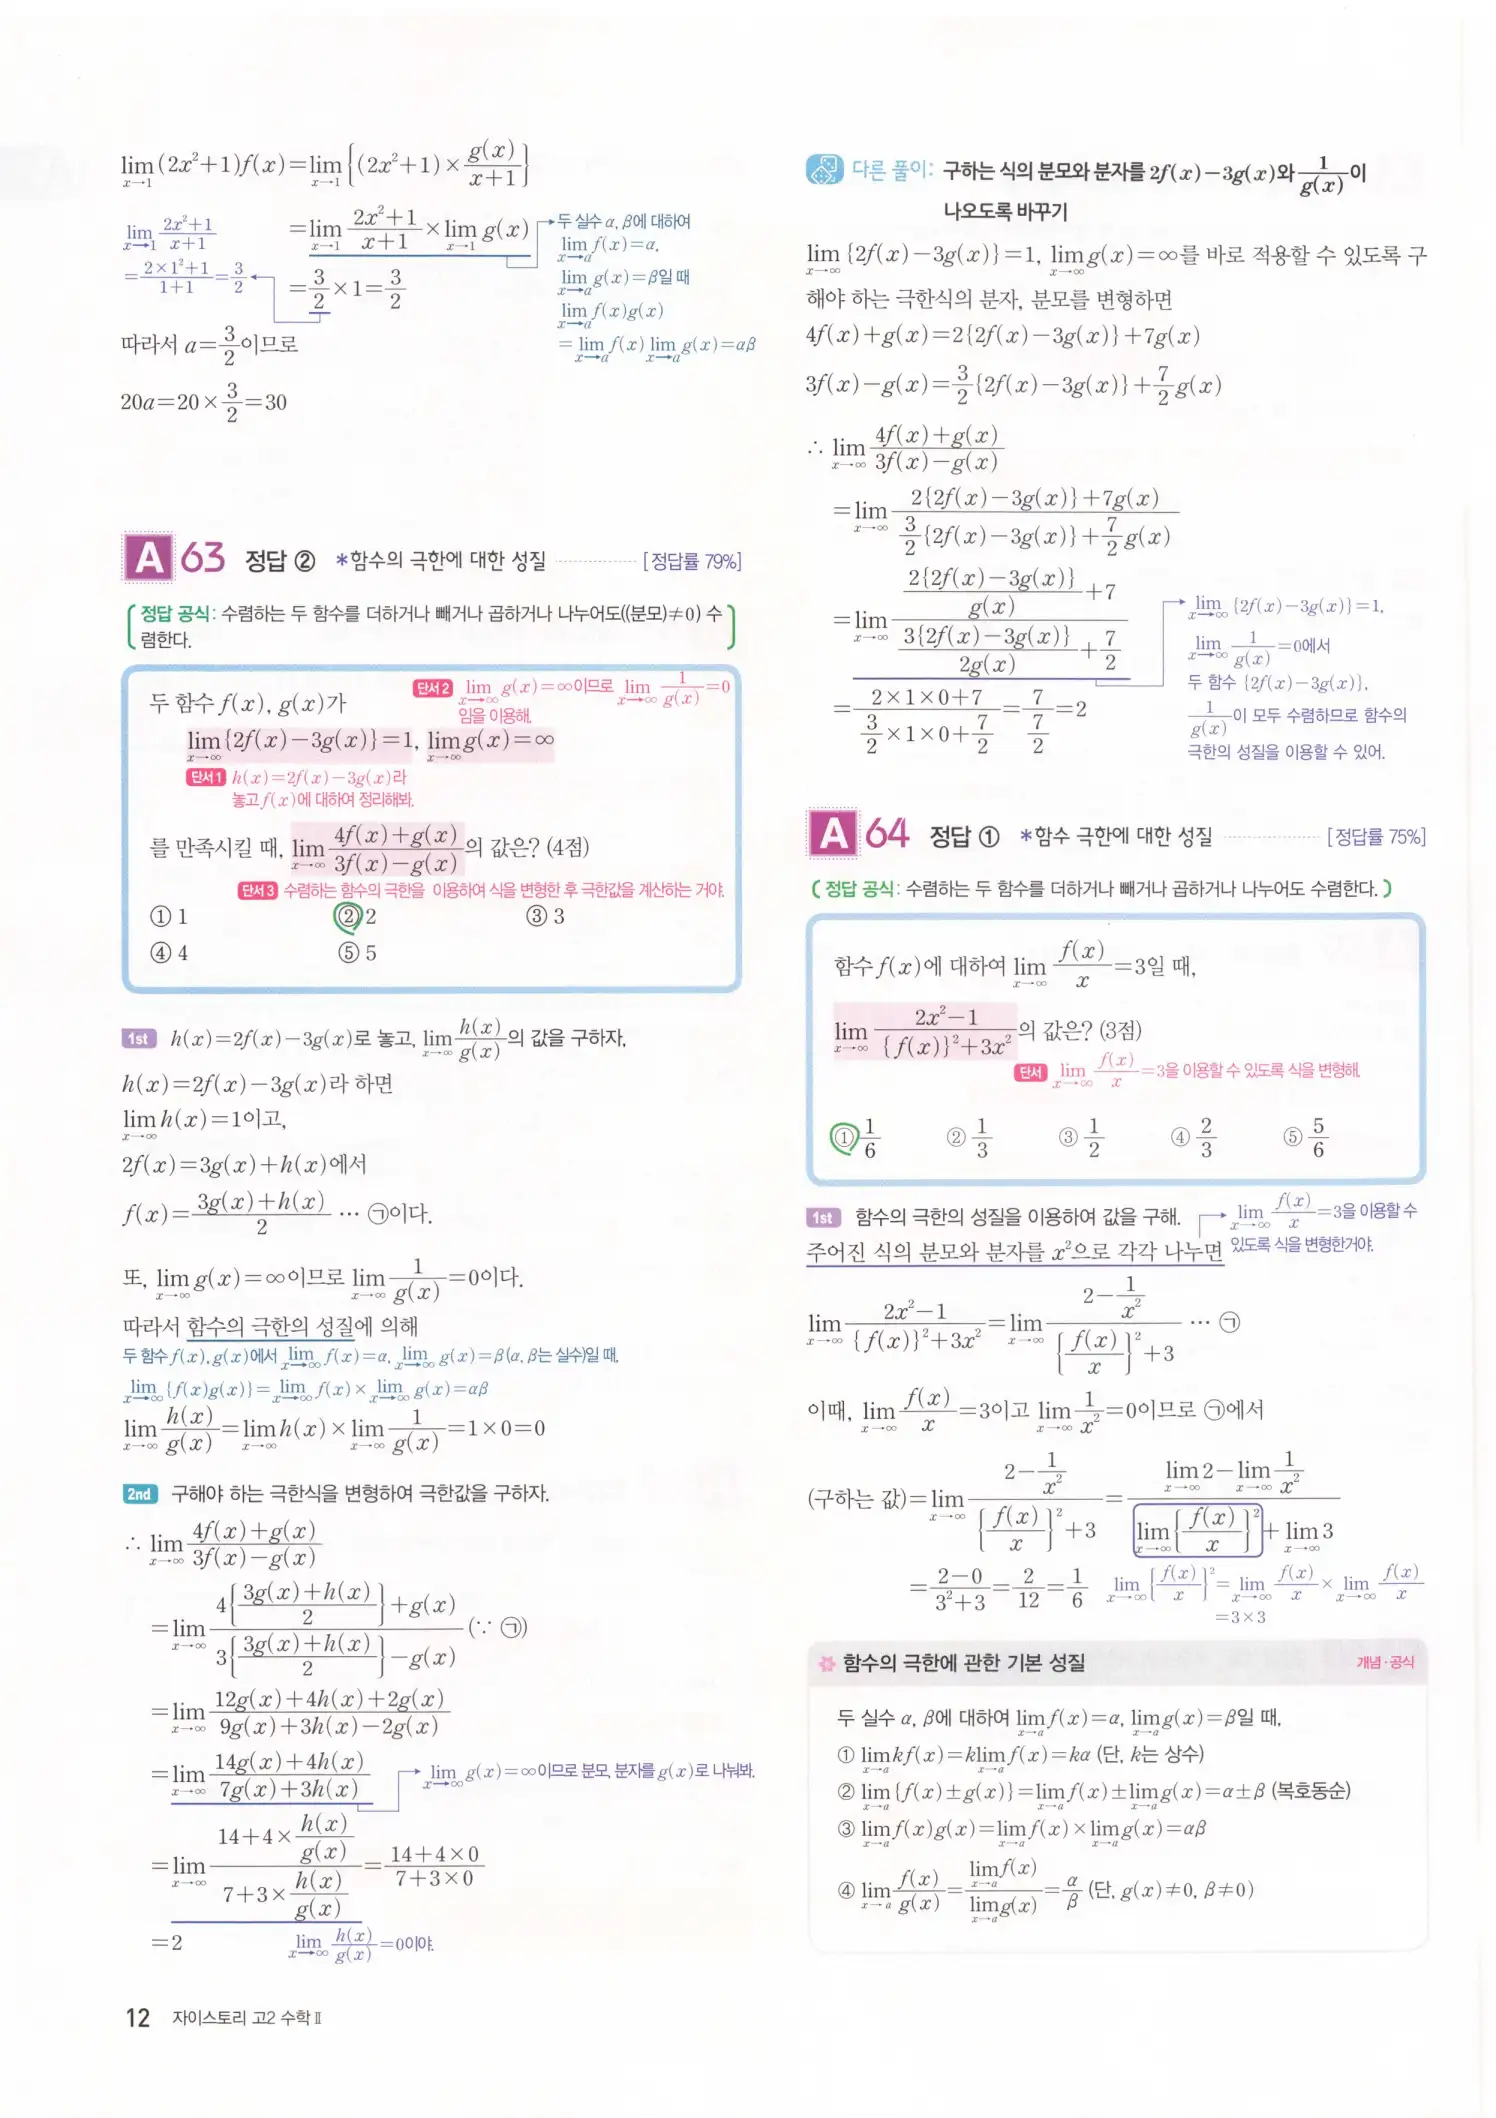 lim_{x→1}(2x²+1)f(x)=lim_{x→1}{(2x²+1)×g(x)/(x+1)}
=lim_{x→1} (2x²+1)/(x+1)×lim_{x→1} g(x)
lim_{x→1} (2x²+1)/(x+1)
=(2×1²+1)/(1+1)=3/2
=3/2×1=3/2
두 실수 α, β에 대하여
lim_{x→a} f(x)=α,
lim_{x→a} g(x)=β일 때
lim_{x→a} f(x)g(x)
=lim_{x→a} f(x) lim_{x→a} g(x)=αβ
따라서 a=3/2이므로
20a=20×3/2=30
A 63 정답 ② *함수의 극한에 대한 성질 [정답률 79%]
정답 공식: 수렴하는 두 함수를 더하거나 빼거나 곱하거나 나누어도((분모)≠0) 수
렴한다.
두 함수 f(x), g(x)가
단서2 lim_{x→∞} g(x)=∞이므로 lim_{x→∞} 1/g(x)=0
임을 이용해.
lim_{x→∞}{2f(x)−3g(x)}=1, lim_{x→∞}g(x)=∞
단서1 h(x)=2f(x)−3g(x)라
놓고 f(x)에 대하여 정리해봐.
를 만족시킬 때, lim_{x→∞} (4f(x)+g(x))/(3f(x)−g(x))의 값은? (4점)
단서3 수렴하는 함수의 극한을 이용하여 식을 변형한 후 극한값을 계산하는 거야.
① 1 ② 2 ③ 3
④ 4 ⑤ 5
1st h(x)=2f(x)−3g(x)로 놓고, lim_{x→∞} h(x)/g(x)의 값을 구하자.
h(x)=2f(x)−3g(x)라 하면
lim_{x→∞} h(x)=1이고,
2f(x)=3g(x)+h(x)에서
f(x)=(3g(x)+h(x))/2 … ㉠이다.
또, lim_{x→∞} g(x)=∞이므로 lim_{x→∞} 1/g(x)=0이다.
따라서 함수의 극한의 성질에 의해
두 함수 f(x), g(x)에서 lim_{x→∞} f(x)=α, lim_{x→∞} g(x)=β(α, β는 실수)일 때,
lim_{x→∞} {f(x)g(x)}=lim_{x→∞} f(x)×lim_{x→∞} g(x)=αβ
lim_{x→∞} h(x)/g(x)=lim_{x→∞} h(x)×lim_{x→∞} 1/g(x)=1×0=0
2nd 구해야 하는 극한식을 변형하여 극한값을 구하자.
∴ lim_{x→∞} (4f(x)+g(x))/(3f(x)−g(x))
=lim_{x→∞} (4{(3g(x)+h(x))/2}+g(x))/(3{(3g(x)+h(x))/2}−g(x)) (∵ ㉠)
=lim_{x→∞} (12g(x)+4h(x)+2g(x))/(9g(x)+3h(x)−2g(x))
=lim_{x→∞} (14g(x)+4h(x))/(7g(x)+3h(x))
lim_{x→∞} g(x)=∞이므로 분모, 분자를 g(x)로 나눠봐.
=lim_{x→∞} (14+4×h(x)/g(x))/(7+3×h(x)/g(x))=(14+4×0)/(7+3×0)
=2
lim_{x→∞} h(x)/g(x)=0이야.
12 자이스토리 고2 수학Ⅱ
다른 풀이: 구하는 식의 분모와 분자를 2f(x)−3g(x)와 1/g(x)이
나오도록 바꾸기
lim_{x→∞} {2f(x)−3g(x)}=1, lim_{x→∞} g(x)=∞를 바로 적용할 수 있도록 구
해야 하는 극한식의 분자, 분모를 변형하면
4f(x)+g(x)=2{2f(x)−3g(x)}+7g(x)
3f(x)−g(x)=3/2{2f(x)−3g(x)}+7/2 g(x)
∴ lim_{x→∞} (4f(x)+g(x))/(3f(x)−g(x))
=lim_{x→∞} (2{2f(x)−3g(x)}+7g(x))/(3/2{2f(x)−3g(x)}+7/2 g(x))
=lim_{x→∞} (2{2f(x)−3g(x)}/g(x)+7)/(3{2f(x)−3g(x)}/2g(x)+7/2)
=(2×1×0+7)/(3/2×1×0+7/2)=7/(7/2)=2
lim_{x→∞} {2f(x)−3g(x)}=1,
lim_{x→∞} 1/g(x)=0에서
두 함수 {2f(x)−3g(x)},
1/g(x)이 모두 수렴하므로 함수의
극한의 성질을 이용할 수 있어.
A 64 정답 ① *함수 극한에 대한 성질 [정답률 75%]
정답 공식: 수렴하는 두 함수를 더하거나 빼거나 곱하거나 나누어도 수렴한다.
함수 f(x)에 대하여 lim_{x→∞} f(x)/x=3일 때,
lim_{x→∞} (2x²−1)/({f(x)}²+3x²)의 값은? (3점)
단서 lim_{x→∞} f(x)/x=3을 이용할 수 있도록 식을 변형해.
① 1/6 ② 1/3 ③ 1/2 ④ 2/3 ⑤ 5/6
1st 함수의 극한의 성질을 이용하여 값을 구해.
lim_{x→∞} f(x)/x=3을 이용할 수
있도록 식을 변형한거야.
주어진 식의 분모와 분자를 x²으로 각각 나누면
lim_{x→∞} (2x²−1)/({f(x)}²+3x²)=lim_{x→∞} (2−1/x²)/({f(x)/x}²+3) … ㉠
이때, lim_{x→∞} f(x)/x=3이고 lim_{x→∞} 1/x²=0이므로 ㉠에서
(구하는 값)=lim_{x→∞} (2−1/x²)/({f(x)/x}²+3)=(lim_{x→∞} 2−lim_{x→∞} 1/x²)/(lim_{x→∞}{f(x)/x}²+lim_{x→∞} 3)
=(2−0)/(3²+3)=2/12=1/6
lim_{x→∞} {f(x)/x}²=lim_{x→∞} f(x)/x×lim_{x→∞} f(x)/x
=3×3
함수의 극한에 관한 기본 성질 개념·공식
두 실수 α, β에 대하여 lim_{x→a} f(x)=α, lim_{x→a} g(x)=β일 때,
① lim_{x→a} kf(x)=k lim_{x→a} f(x)=kα (단, k는 상수)
② lim_{x→a} {f(x)±g(x)}=lim_{x→a} f(x)±lim_{x→a} g(x)=α±β (복호동순)
③ lim_{x→a} f(x)g(x)=lim_{x→a} f(x)×lim_{x→a} g(x)=αβ
④ lim_{x→a} f(x)/g(x)=lim_{x→a} f(x)/lim_{x→a} g(x)=α/β (단, g(x)≠0, β≠0)